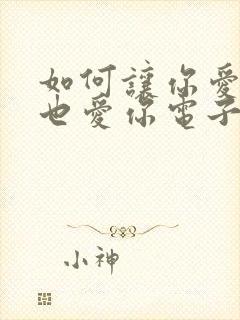 如何讓你愛
也愛你電子
小神